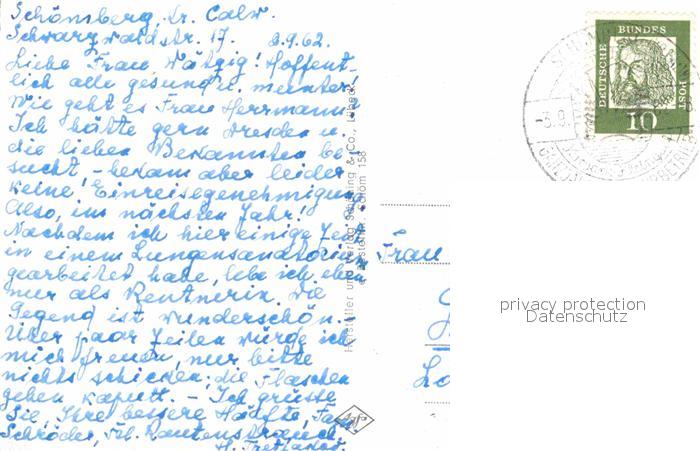 Schömberg, Kr. Calw.
Schwarzwaldstr. 17. 2.9.62.
Liebe Frau Wätzig! Hoffent-
lich alle gesund u. munter!
Wie geht es Frau Herrmann
Ich hätte gern Dresden u.
die lieben Bekannten be
sucht - bekam aber leider
keine Einreisegenehmigung
Also, im nächsten Jahr!
Nachdem ich hier einige Zeit
in einem Lungensanatorium
gearbeitet habe, lebe ich eben
nur als Rentnerin. Die
Gegend ist wunderschön.
Über paar Zeilen würde ich
mich freuen, nur bitte
nichts schicken, die Flaschen
gehen kaputt. - Ich grüsse
Sie, Ihre bessere Hälfte, Fam.
Schröder, Frl. Rautenstrauch
H.
Hersteller und Verlag Schöning & Co., Lübeck
Schöm 158
Frau
DEUTSCHE BUNDESPOST
10
-3.9.
privacy protection
Datenschutz